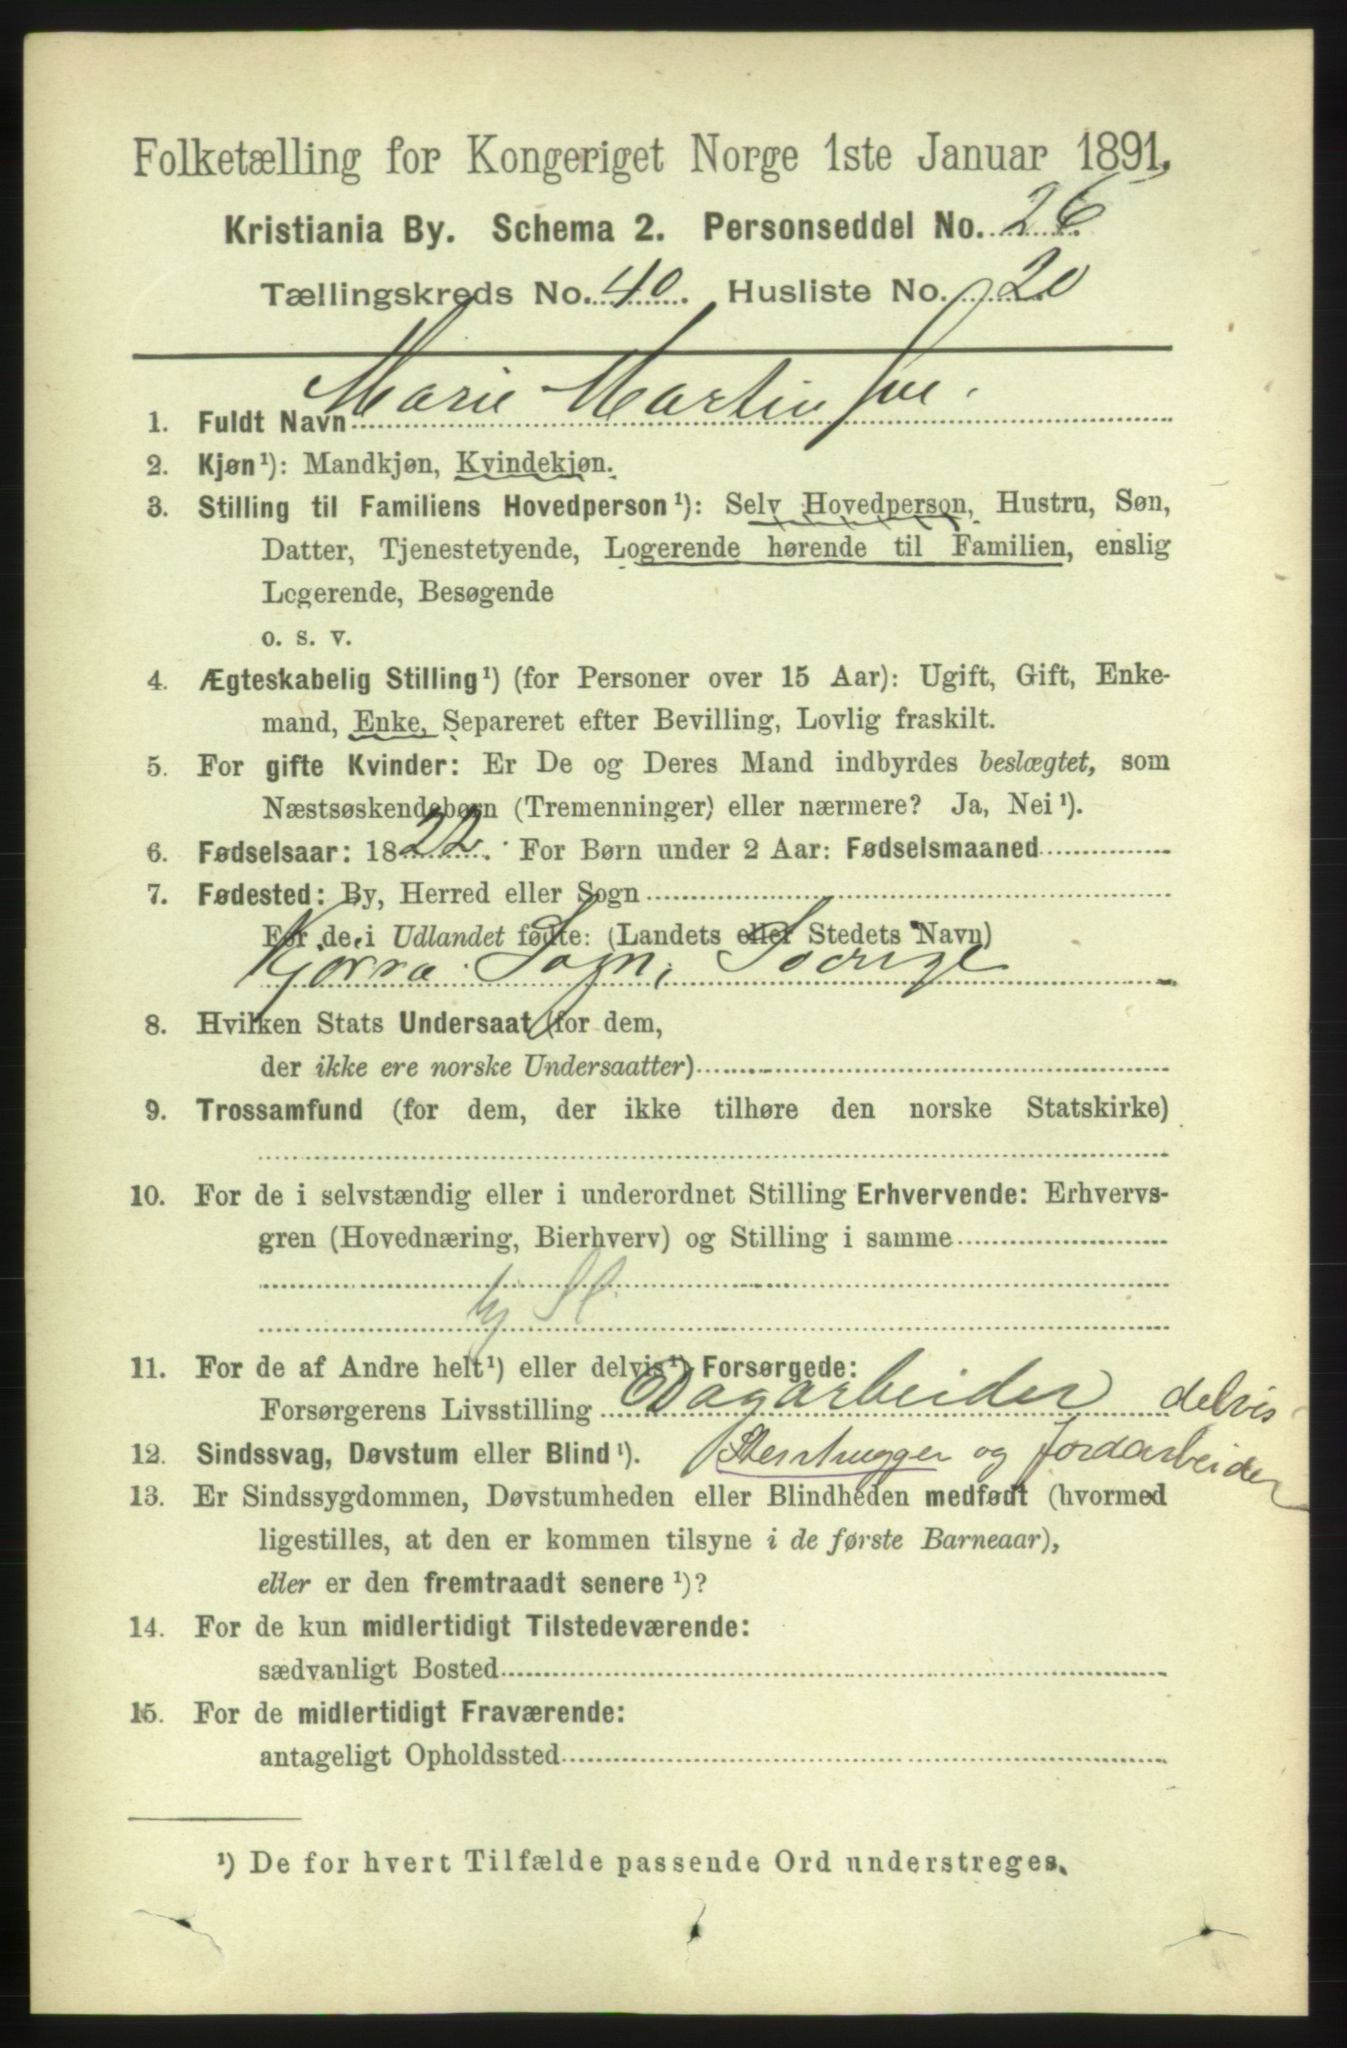 Folketælling for Kongeriget Norge 1ste Januar 1891.
Kristiania By. Schema 2. Personseddel No. 26
Tællingskreds No. 40. Husliste No. 20
1. Fuldt Navn Marie Martin
2. Kjøn¹): Mandkjøn, Kvindekjøn.
3. Stilling til Familiens Hovedperson¹): Selv Hovedperson, Hustru, Søn,
Datter, Tjenestetyende, Logerende hørende til Familien, enslig
Logerende, Besøgende
o. s. v.
4. Ægteskabelig Stilling¹) (for Personer over 15 Aar): Ugift, Gift, Enke-
mand, Enke, Separeret efter Bevilling, Lovlig fraskilt.
5. For gifte Kvinder: Er De og Deres Mand indbyrdes beslægtet, som
Næstsøskendebørn (Tremenninger) eller nærmere? Ja, Nei¹).
6. Fødselsaar: 1822. For Børn under 2 Aar: Fødselsmaaned
7. Fødested: By, Herred eller Sogn
For de i Udlandet fødte: (Landets eller Stedets Navn)
Sogn, Sverige
8. Hvilken Stats Undersaat (for dem,
der ikke ere norske Undersaatter)
9. Trossamfund (for dem, der ikke tilhøre den norske Statskirke)
10. For de i selvstændig eller i underordnet Stilling Erhvervende: Erhvervs-
gren (Hovednæring, Bierhverv) og Stilling i samme
11. For de af Andre helt¹) eller delvis¹) Forsørgede:
Forsørgerens Livsstilling Dagarbeider delvis
Stenhugger og Jordarbeider
12. Sindssvag, Døvstum eller Blind¹).
13. Er Sindssygdommen, Døvstumheden eller Blindheden medfødt (hvormed
ligestilles, at den er kommen tilsyne i de første Barneaar),
eller er den fremtraadt senere¹)?
14. For de kun midlertidigt Tilstedeværende:
sædvanligt Bosted
15. For de midlertidigt Fraværende:
antageligt Opholdssted
¹) De for hvert Tilfælde passende Ord understreges.